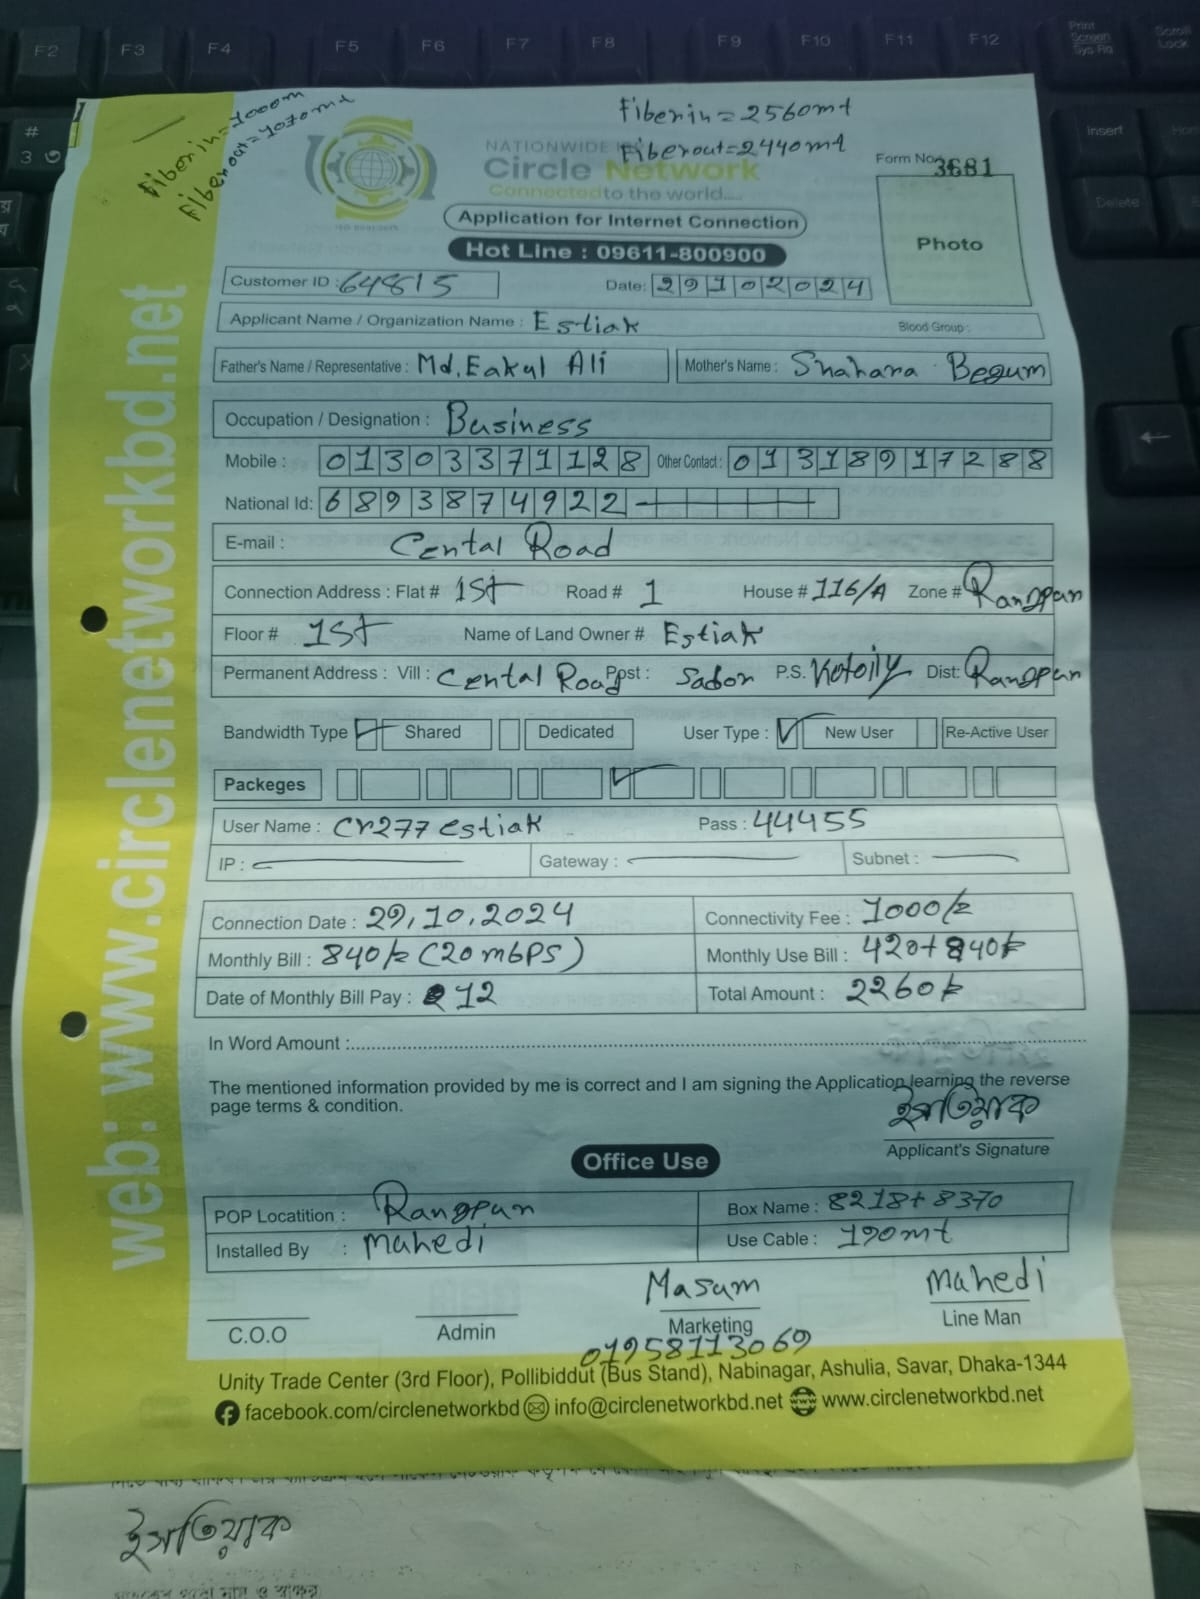 F2 F3 F4 F5 F6 F7 F8 F9 F10 F11 F12 Print Screen Sys Rq Scroll Lock
Insert
Delete
# 3
Fiber in = 1000m
Fiber out = 1070 mt
Fiber in = 2560mt
Fiber out = 2440mt
NATIONWIDE
Circle Network
Connected to the world....
Form No: 3681
Photo
Application for Internet Connection
Hot Line : 09611-800900
Customer ID : 64815 Date: 29102024
Applicant Name / Organization Name : Estiak Blood Group :
Father's Name / Representative : Md. Eakul Ali Mother's Name : Shahara Begum
Occupation / Designation : Business
Mobile : 01303371128 Other Contact : 01318917288
National Id: 6893874922
E-mail : Cental Road
Connection Address : Flat # 1st Road # 1 House # 116/A Zone # Rangpur
Floor # 1st Name of Land Owner # Estiak
Permanent Address : Vill : Cental Road Post : Sador P.S. Kotoily Dist: Rangpur
Bandwidth Type Shared Dedicated User Type : New User Re-Active User
Packeges
User Name : cr277estiak Pass : 44455
IP : Gateway : Subnet :
Connection Date : 29,10,2024 Connectivity Fee : 1000/=
Monthly Bill : 840/= (20 mbPS) Monthly Use Bill : 420+840/=
Date of Monthly Bill Pay : 12 Total Amount : 2260/=
In Word Amount :
The mentioned information provided by me is correct and I am signing the Application learning the reverse
page terms & condition.
ইসতিয়াক
Applicant's Signature
Office Use
POP Locatition : Rangpur Box Name : 8218+8370
Installed By : Mahedi Use Cable : 190mt
Masum Mahedi
C.O.O Admin Marketing Line Man
01958113069
Unity Trade Center (3rd Floor), Pollibiddut (Bus Stand), Nabinagar, Ashulia, Savar, Dhaka-1344
facebook.com/circlenetworkbd info@circlenetworkbd.net www.circlenetworkbd.net
web: www.circlenetworkbd.net
ইসতিয়াক